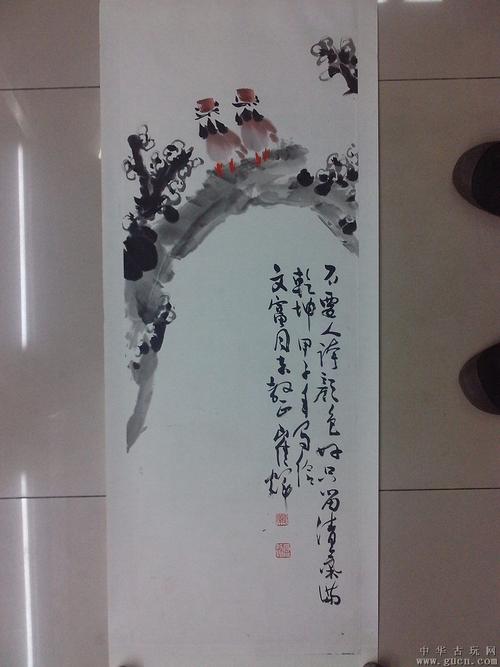 不要人誇顏色好只留清氣滿
乾坤 甲子年写给
文富同志教正 崔辉
中华古玩网
www.gucn.com